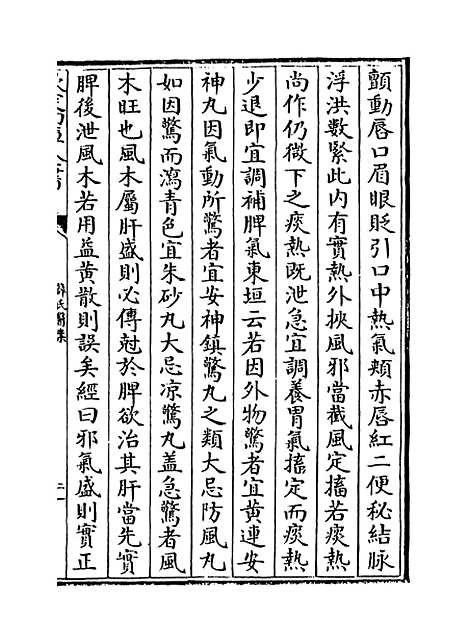 顫動唇口眉眼眨引口中熱氣頰赤唇紅二便秘結脈
浮洪數緊此内有實熱外挾風邪當截風定搐若痰熱
尚作仍微下之痰熱既泄急宜調養胃氣搐定而痰熱
少退即宜調補脾氣東垣云若因外物驚者宜黄連安
神丸因氣動所驚者宜安神鎮驚丸之類大忌防風丸
如因驚而瀉青色宜朱砂丸大忌凉驚丸葢急驚者風
木旺也風木屬肝盛則必傳尅於脾欲治其肝當先實
脾後泄風木若用益黄散則誤矣經曰邪氣盛則實正
薛氏醫案